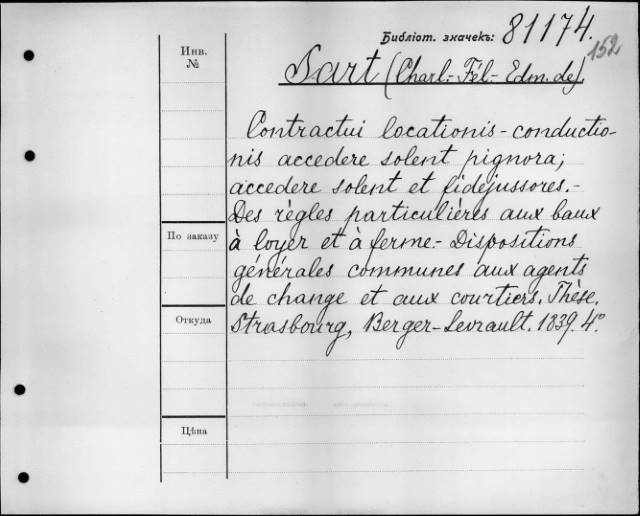 Библіот. значекъ: 81174.
152
Инв.
№
Sart (Charl.-Fél.-Edm. de).
Contractui locationis-conductio-
nis accedere solent pignora;
accedere solent et fidejussores.-
Des règles particulières aux baux
à loyer et à ferme.- Dispositions
По заказу
générales communes aux agents
de change et aux courtiers. Thèse.
Откуда
Strasbourg, Berger-Levrault. 1839. 4°
Цѣна